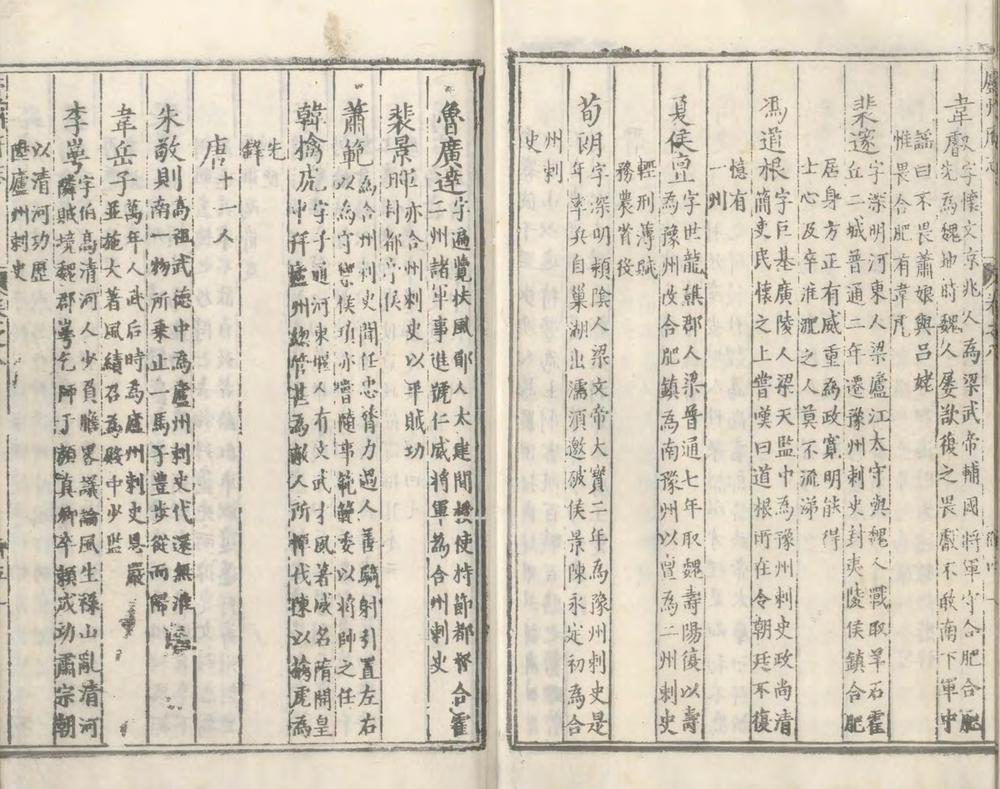 韋叡字懷文京兆人為梁武帝輔國將軍守合肥合肥
先為魏地時魏人屢欲復之畏叡不敢南下軍中
謡曰不畏蕭娘與呂姥
惟畏合肥有韋虎
裴邃字深明河東人梁廬江太守與魏人戰取羊石霍
丘二城普通二年遷豫州刺史封夷陵侯鎮合肥
居身方正有威重為政寛明能得
士心及卒淮淝之人莫不流涕
馮道根字巨基廣陵人梁天監中為豫州刺史政尚清
簡吏民懷之上嘗嘆曰道根所在令朝廷不復
憶有
一州
夏侯亶字世龍譙郡人梁普通七年取魏壽陽復以壽
為豫州改合肥鎮為南豫州以亶為二州刺史
輕刑薄賦
務農省役
荀朗字深明潁陰人梁文帝大寳二年為豫州刺史是
年率兵自巢湖出濡須邀破侯景陳永定初為合
州刺
史
魯廣達字遍覽扶風郿人太建間授使持節都督合霍
二州諸軍事進號仁威將軍為合州刺史
裴景暉亦合州刺史以平賊功
封都亭侯
蕭範為合州刺史聞任忠膂力過人善騎射引置左右
以為守戀侯瑱亦嘗隨事範範委以將帥之任
韓擒虎字子通河東垣人有文武才夙著威名隋開皇
中拜廬州緫管甚為敵人所憚伐陳以擒虎為
先
鋒
唐十一人
朱敬則高祖武德中為廬州刺史代還無淮
南一物所乗止一馬子曹步從而歸
韋岳子萬年人武后時為廬州刺史恩嚴
並施大著風績召為殿中少監
李崿字伯高清河人少負膽畧議論風生祿山亂清河
隣賊境魏郡崿乞師于顔真卿卒頼成功肅宗朝
以清河功歴
歴廬州刺史